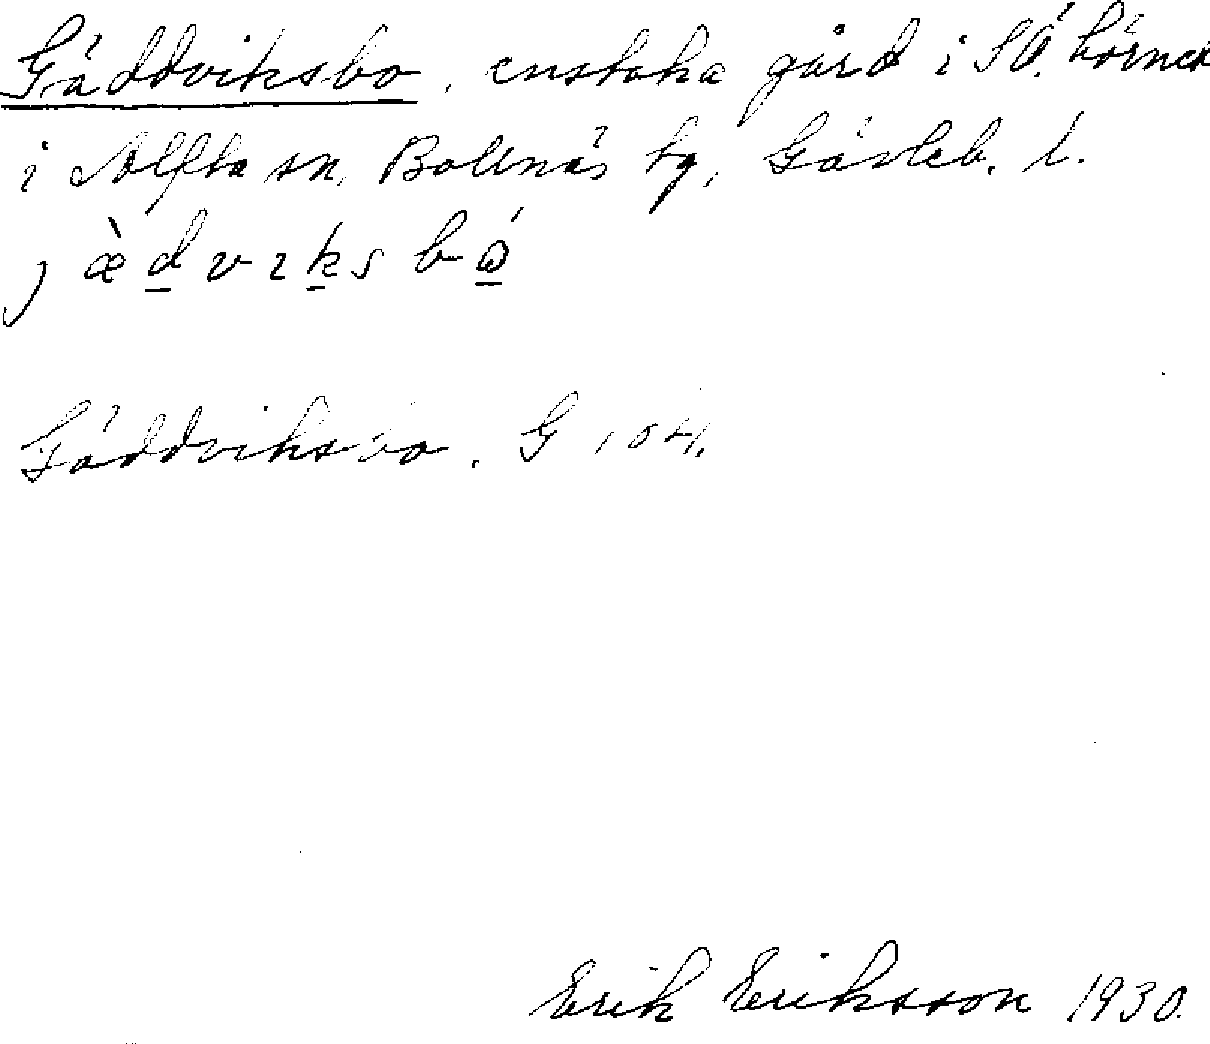 Gäddviksbo, enstaka gård i SÖ. hörnet
i Alfta sn, Bollnäs tg, Gävleb. l.
j æ̀ d̲ v ɪ k̲ s b ó̲
Gäddviksbo. G 104.
Erik Eriksson 1930.